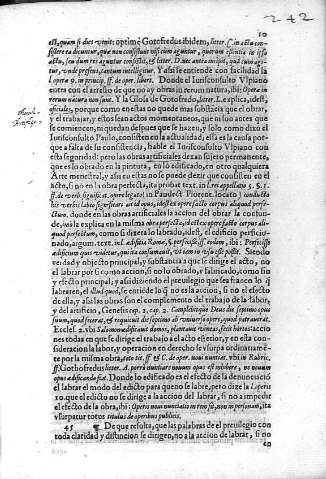 242
10
est, quam si dies venit: optime Gotofredus ibidem, liter. C. in actu con-
sistere ea dicuntur, quæ non consistunt nisi cum aguntur, quorum essentia in ipso
actu, seu dum res aguntur consistit, & liter. D. nec antea incipit, quã cum agi-
tur, unde præsens, tantum intelligitur. Y assi se entiende con facilidad la
l. opera 9. in princip. ff. de oper. libert. Donde el Iurisconsulto Vlpiano
entra con el arresto de que no ay obras in rerum natura, ibi: Opera in
rerum natura non sunt. Y la Glosa de Gotofredo, liter. I. explica, idest,
officiales, porque como en estas no quede mas substancia que el obrar,
y el trabajar, y estos sean actos momentaneos, que ni son antes que
se comiencen, ni quedan despues que se hazen, y solo como dixo el
Iurisconsulto Paulo, consisten en la actualidad, essa es la causa por-
que a falta de su consistencia, hable el Iurisconsulto Vlpiano con
esta seguridad: pero las obras artificiales dexan sujeto permanente,
que es lo obrado en la pintura, en lo edificado, en otro qualquiera
Arte menestral, y assi en estas no se puede dezir que consisten en el
acto, si no en la obra perfecta, ita probat text. in l.
ff. de verb. signific. at opere locato: in Pandect. Florent. locato: conducto
his verbis labeo significari ait id opus, idest ex opere facto corpus aliquod perfe-
ctum, donde en las obras artificiales la accion del obrar la confun-
de, mas la explica en la misma obra perfecta, idest ex opere facto corpus ali-
quod perfectum, como si dixera lo labrado, idest, el edificio perficio-
nado, argum. text. in l. ædilia Romæ, §. perfecisse, ff. eodem, ibi: Perficisse
ædificium quis videtur, qui ita consumavit, ut iam in usu esse possit. Siendo
verdad y objecto principal, y substancia a que se dirige el acto, no
el labrar por si como accion, si no lo obrado, y fabricado, como fin
y efecto principal, y assi diziendo el preuilegio que sea franco lo q̃
labraren, est illud quod, se entiende lo q̃ no es la accion, si no el efecto
de ella, y assi las obras son el complemento del trabajo de la fabrica,
y del artificio, Genesis cap. 2. cap. 2. Complevitque Deus die septimo opus
suum, quod fecerat, & requievit die septimo ab universo opere, quod patraverat,
Eccles. 2. ubi Salomon ædificavit domos, plantavit vineas, fecit hortos: accio-
nes todas en que se dirige el trabajo a el acto exterior, y en esta con-
sideracion la labor, y operacion en derecho se usurpa ordinariamẽ-
te por la misma obra, toto tit. ff. & C. de oper. novi nuntiat. ubi in Rubric.
ff. Gothofredus liter. d. porrò nuntiare novum opus est inhibere, ne novum
opus ædificando fiat. Donde lo edificado es el efecto de la denunciaciõ
el labrar el modo del edicto para que no se labre, pero dize la l. operis
10. que el edicto no se dirige a la accion del labrar, si no a impedir
el efecto de la obra, ibi: Operis novi nuntiatio in rem fit, non in personam, ita
usurpatur totus titulus de operibus publicis.
45 ¶ De que resulta, que las palabras de el preuilegio con
toda claridad y distincion se dirigen, no a la accion de labrar, si no